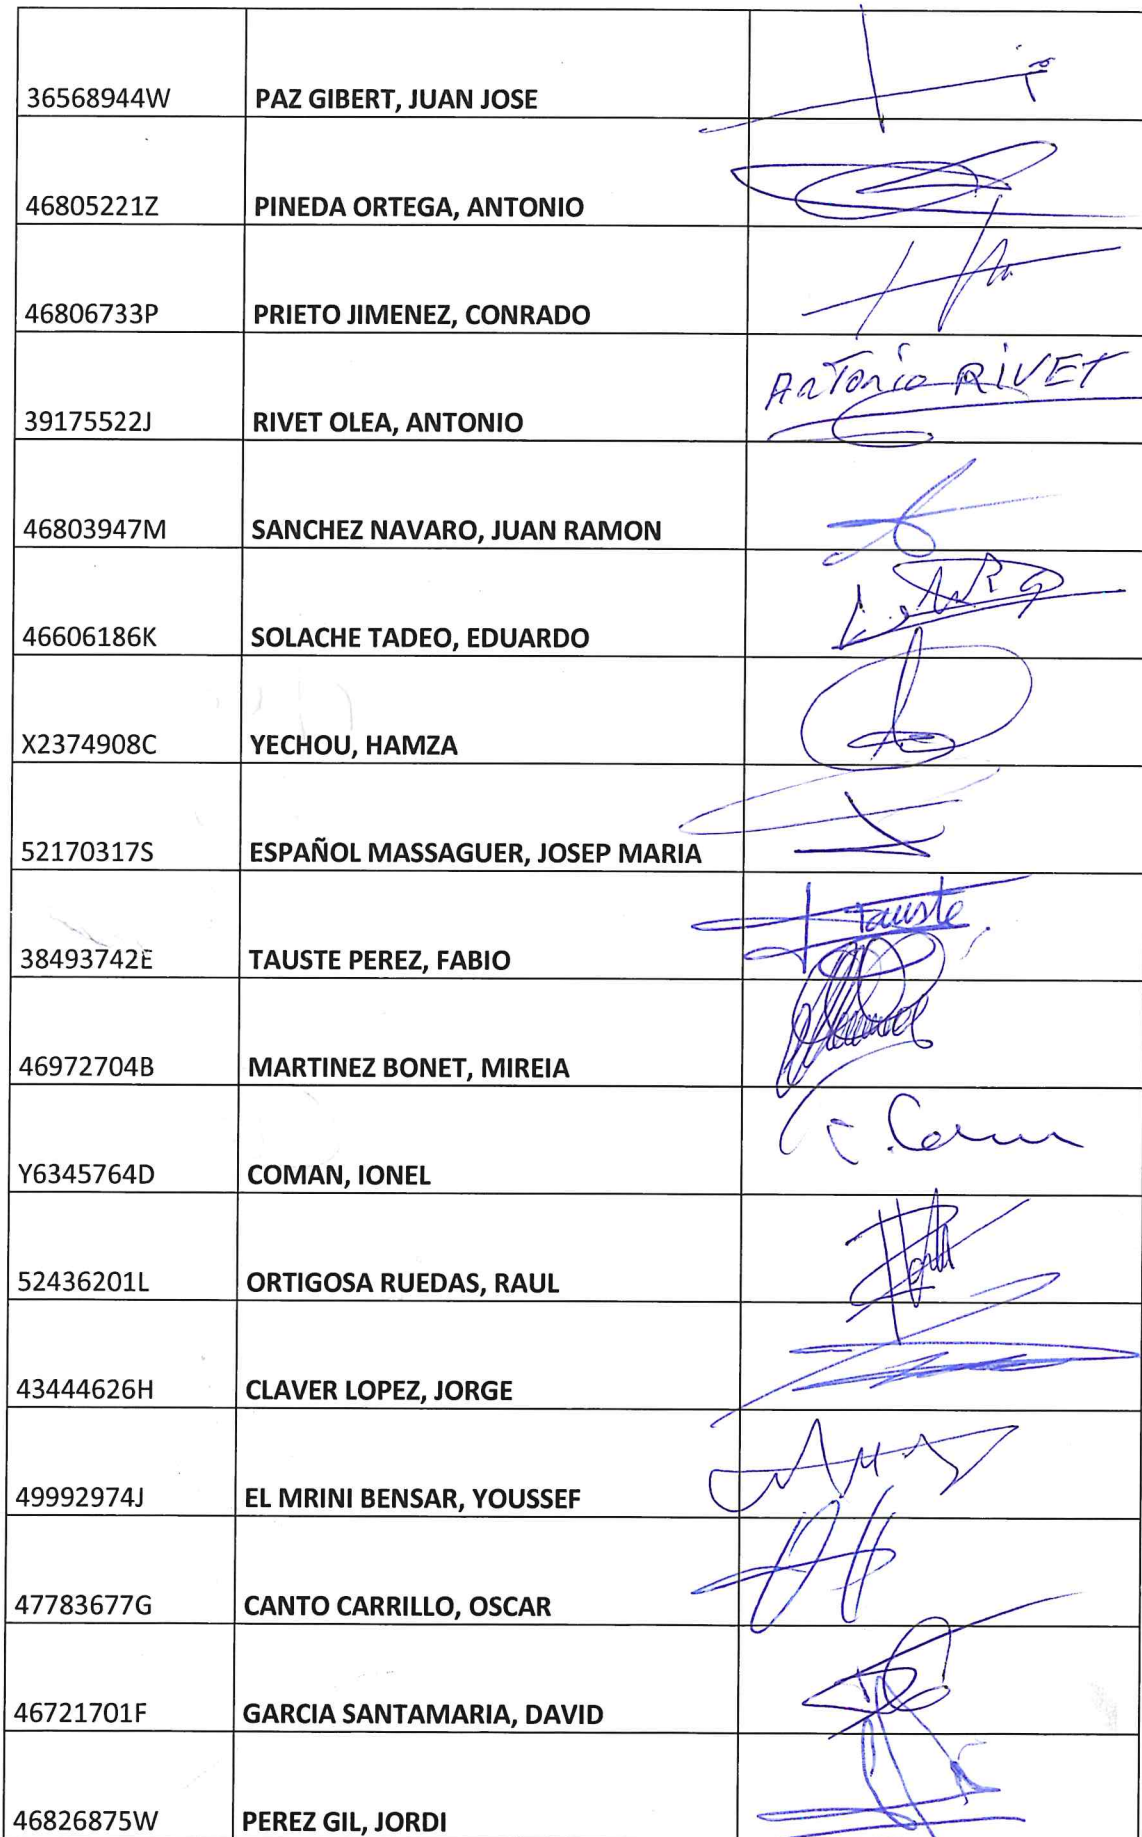 36568944W PAZ GIBERT, JUAN JOSE
46805221Z PINEDA ORTEGA, ANTONIO
46806733P PRIETO JIMENEZ, CONRADO
39175522J RIVET OLEA, ANTONIO Antonio RIVET
46803947M SANCHEZ NAVARO, JUAN RAMON
46606186K SOLACHE TADEO, EDUARDO
X2374908C YECHOU, HAMZA
52170317S ESPAÑOL MASSAGUER, JOSEP MARIA
38493742E TAUSTE PEREZ, FABIO Tauste
46972704B MARTINEZ BONET, MIREIA
Y6345764D COMAN, IONEL
52436201L ORTIGOSA RUEDAS, RAUL
43444626H CLAVER LOPEZ, JORGE
49992974J EL MRINI BENSAR, YOUSSEF
47783677G CANTO CARRILLO, OSCAR
46721701F GARCIA SANTAMARIA, DAVID
46826875W PEREZ GIL, JORDI